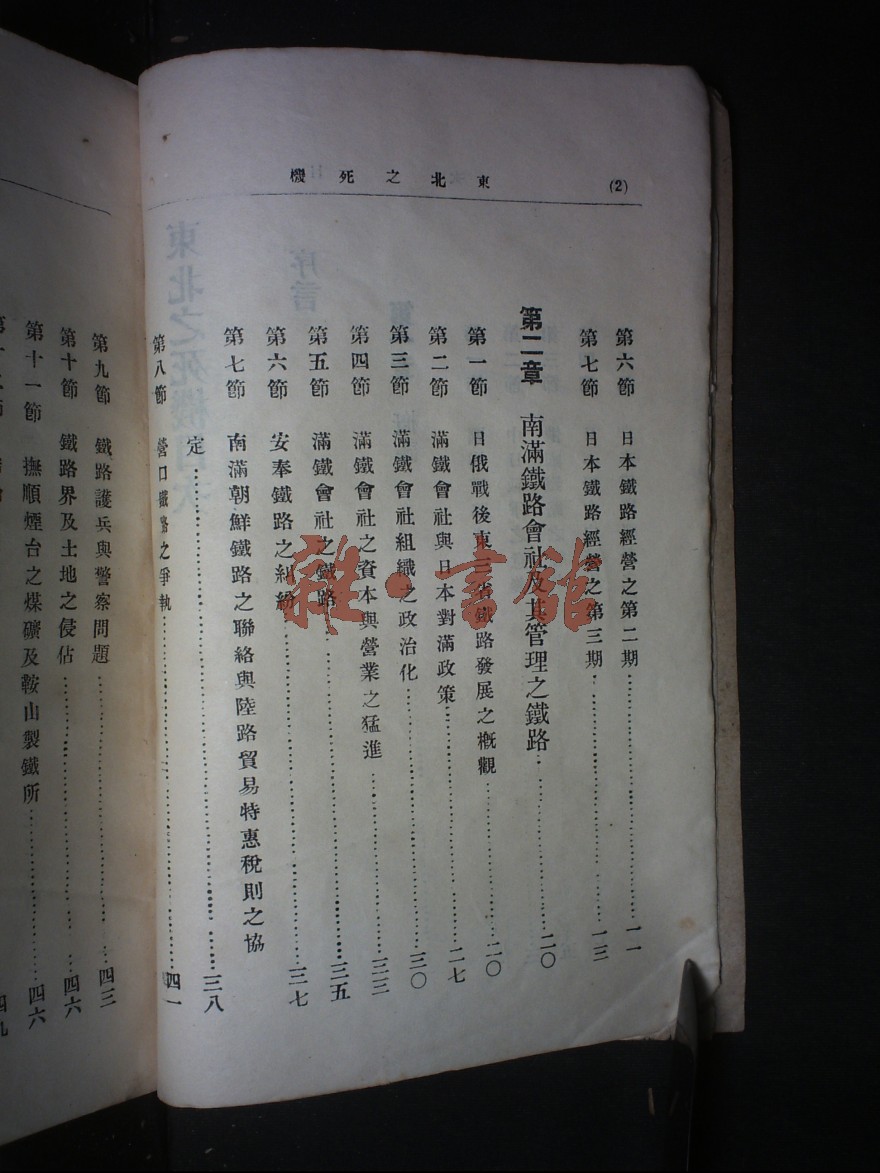 東北之死機
(2)
第六節　日本鐵路經營之第二期……一一
第七節　日本鐵路經營之第三期……一三
第二章　南滿鐵路會社及其管理之鐵路……二〇
第一節　日俄戰後東三省鐵路發展之概觀……二〇
第二節　滿鐵會社與日本對滿政策……二七
第三節　滿鐵會社組織之政治化……三〇
第四節　滿鐵會社之資本與營業之猛進……三三
第五節　滿鐵會社之鐵路……三五
第六節　安奉鐵路之糾紛……三七
第七節　南滿朝鮮鐵路之聯絡與陸路貿易特惠稅則之協
定……三八
第八節　營口鐵路之爭執……四一
第九節　鐵路護兵與警察問題……四三
第十節　鐵路界及土地之侵佔……四六
第十一節　撫順煙台之煤礦及鞍山製鐵所……四六
四九
雜·書館